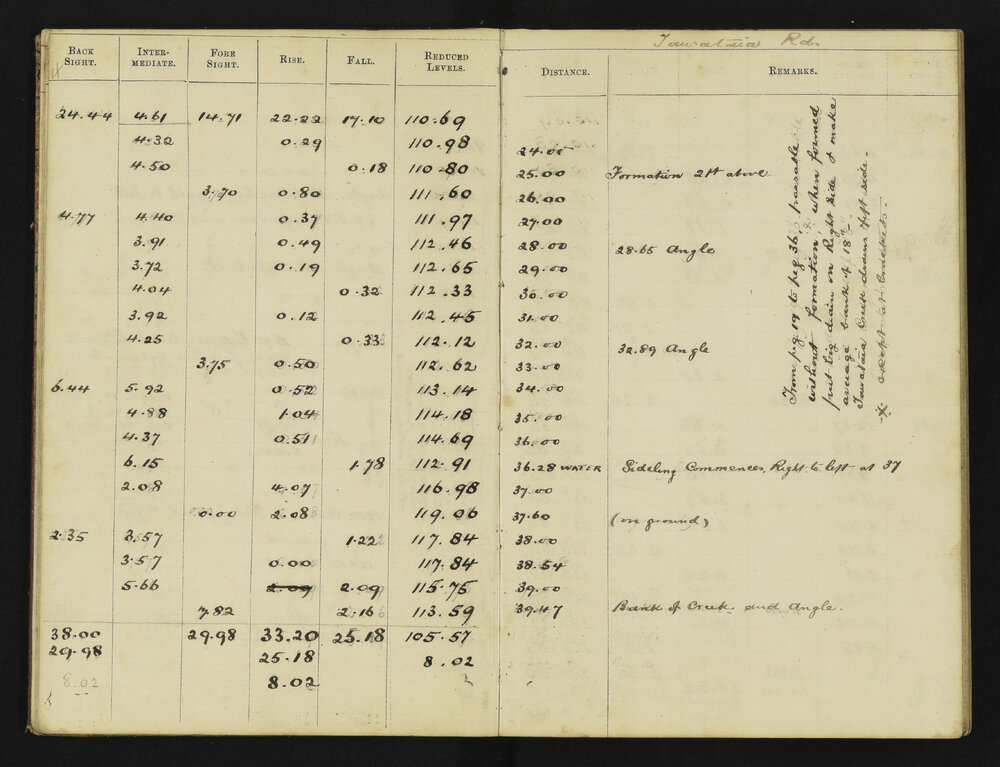 Tawataia Rd.
BACK SIGHT. INTERMEDIATE. FORE SIGHT. RISE. FALL. REDUCED LEVELS. DISTANCE. REMARKS.
24.44 4.61 14.71 22.22 17.10 110.69
4.32 0.29 110.98 24.00
4.50 0.18 110.80 25.00 Formation 2ft above
3.70 0.80 111.60 26.00
4.77 4.40 0.37 111.97 27.00
3.91 0.49 112.46 28.00 28.65 Angle
3.72 0.19 112.65 29.00
4.04 0.32 112.33 30.00
3.92 0.12 112.45 31.00
4.25 0.33 112.12 32.00 32.89 Angle
3.75 0.50 112.62 33.00
6.44 5.92 0.52 113.14 34.00
4.88 1.04 114.18 35.00
4.37 0.51 114.69 36.00
6.15 1.78 112.91 36.28 WATER Sideling Commences, Right to left at 37
2.08 4.07 116.98 37.00
0.00 2.08 119.06 37.60 (on ground)
2.35 3.57 1.22 117.84 38.00
3.57 0.00 117.84 38.54
5.66 2.09 2.09 115.75 39.00
7.82 2.16 113.59 39.47 Bank of Creek and Angle.
38.00 29.98 33.20 25.18 105.57
29.98 25.18 8.02
8.02 8.02
From peg 19 to peg 36, passable
without formation, * when formed
put big drain on Right side & make
average bank of 18"
Tawataia Creek drains left side.
* except at Crossings.